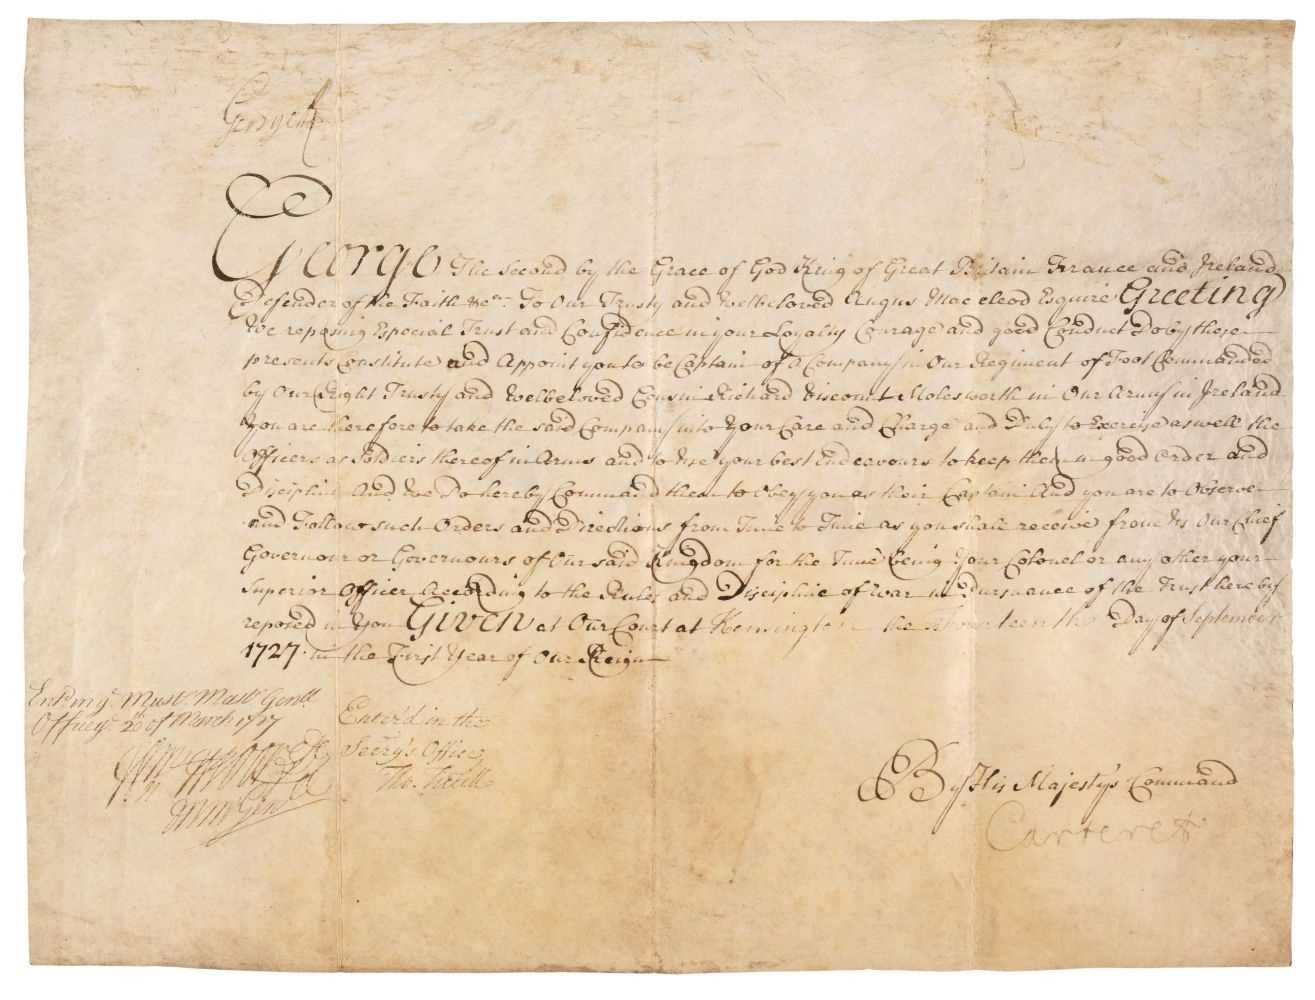 George R
George The Second by the Grace of God King of Great Britain France and Ireland
Defender of the Faith &ca. To Our Trusty and Welbeloved Angus Mac cleod Esquire Greeting
We reposing Especial Trust and Confidence in your Loyalty Courage and good Conduct Do by these
presents Constitute and Appoint you to be Captain of a Company in Our Regiment of Foot Commanded
by Our Right Trusty and Welbeloved Cousin Richard Viscount Molesworth in Our Army in Ireland
You are therefore to take the said Company into Your Care and Charge and Duly to Exercise as well the
Officers as Soldiers thereof in Arms and to Use your best Endeavours to keep them in good Order and
Discipline And We Do hereby Command them to Obey you as their Captain And you are to Observe
and Follow such Orders and Directions from Time to Time as you shall receive from Us Our Chief
Governour or Governours of Our said Kingdom for the Time being Your Colonel or any other your
Superior Officer According to the Rules and Discipline of War in Pursuance of the Trust hereby
reposed in You Given at Our Court at Kensington the Day of September
1727 in the First Year of Our Reign
Must. Mastr. Genll
20th of March 17
Enter'd in the
Secry's Office
Tho.
By His Majesty's Command
Carteret